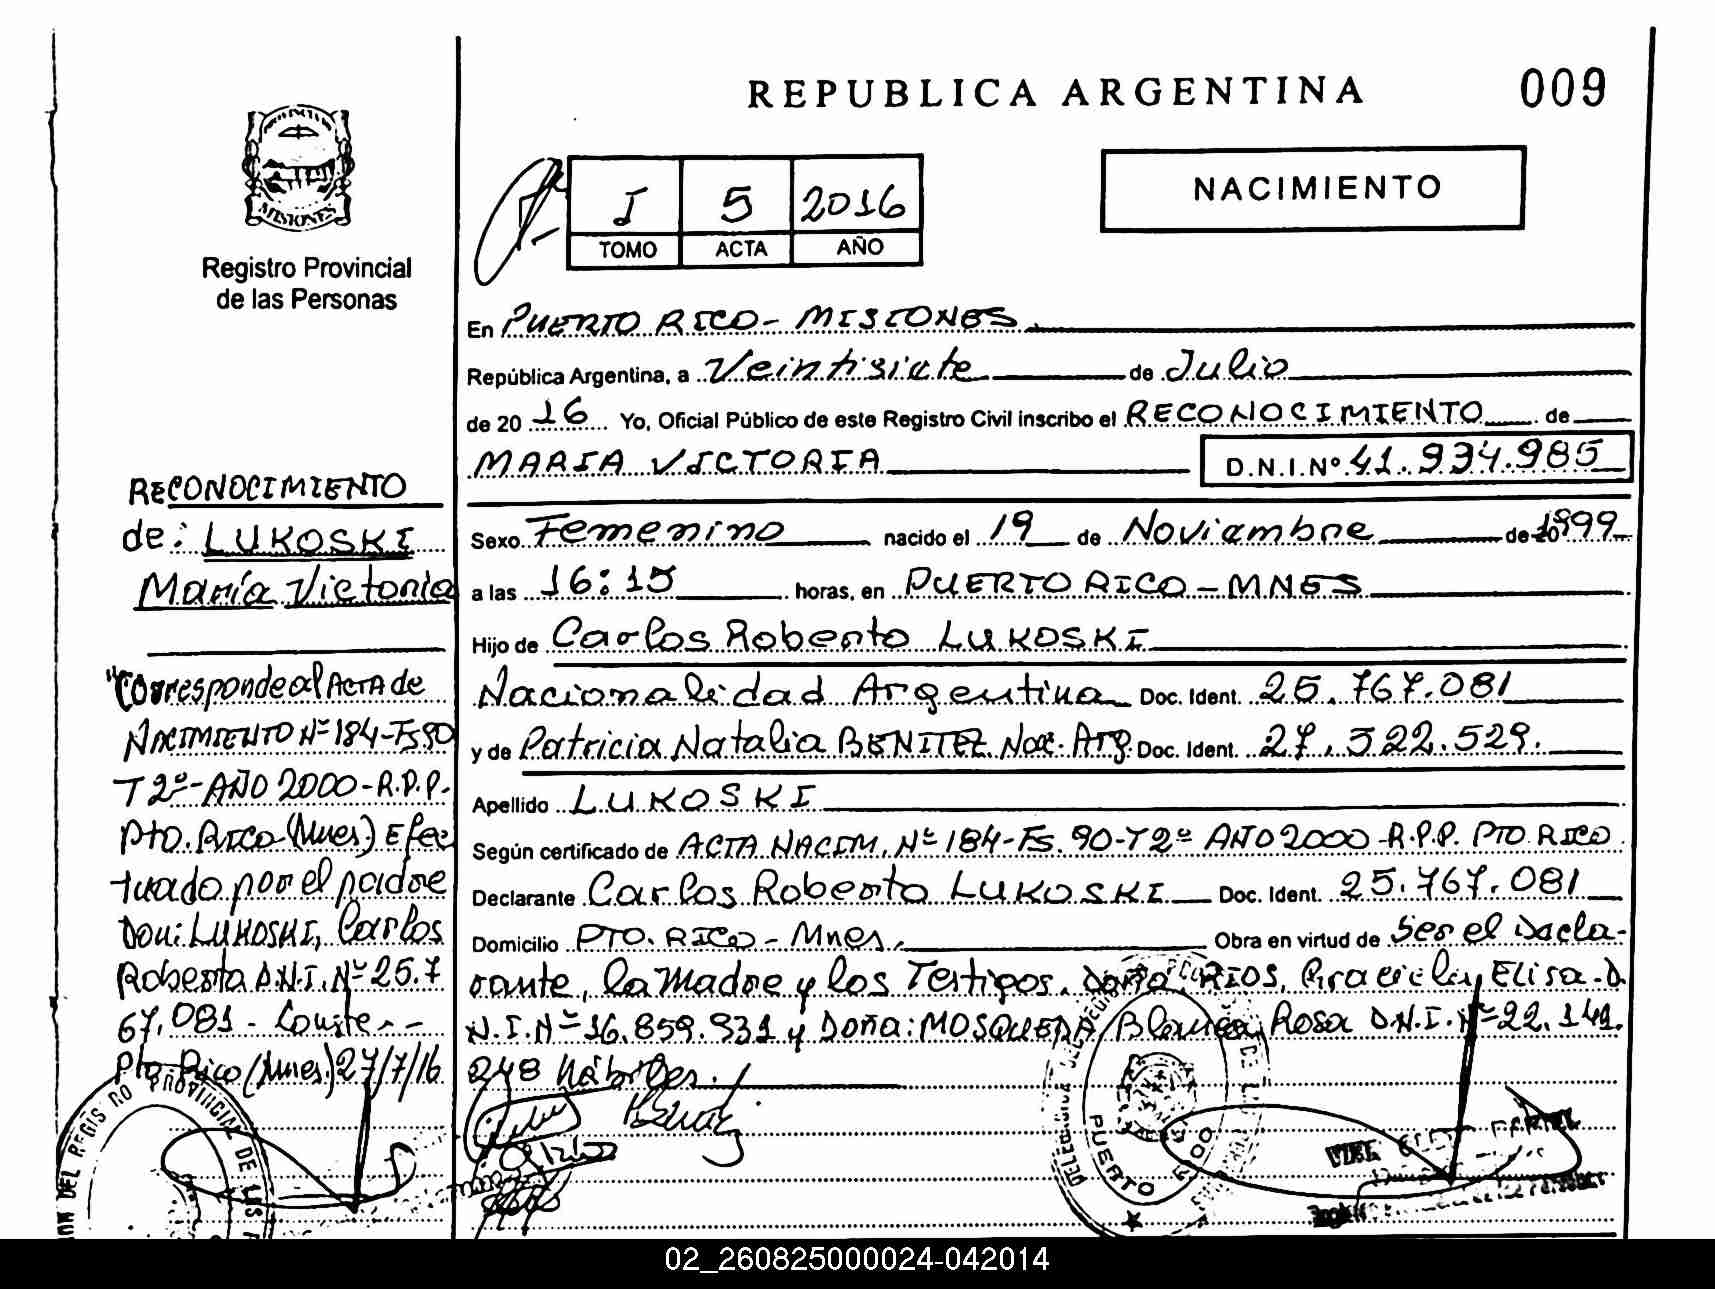 REPUBLICA ARGENTINA
009
PROVINCIA DE
MISIONES
Registro Provincial
de las Personas
I 5 2016
TOMO ACTA AÑO
NACIMIENTO
En PUERTO RICO - MISIONES
República Argentina, a Veintisiete de Julio
de 20 16 Yo, Oficial Público de este Registro Civil inscribo el RECONOCIMIENTO de
MARIA VICTORIA D.N.I.Nº 41.934.985
Sexo Femenino nacido el 19 de Noviembre de 20 1999
a las 16:15 horas, en PUERTO RICO - MNES
Hijo de Carlos Roberto LUKOSKI
Nacionalidad Argentina Doc. Ident. 25.767.081
y de Patricia Natalia BENITEZ Nac. Arg. Doc. Ident. 27.322.529.
Apellido LUKOSKI
Según certificado de ACTA NACIM. Nº 184-Fs. 90-T 2º AÑO 2000 - R.P.P. PTO. RICO
Declarante Carlos Roberto LUKOSKI Doc. Ident. 25.767.081
Domicilio PTO. RICO - Mnes. Obra en virtud de Ser el Decla-
rante, la Madre y los Testigos. Doña RIOS, Graciela Elisa D.
N.I.Nº 16.859.931 y Doña: MOSQUEDA Blanca Rosa D.N.I. Nº 22.141.
248 Hábiles.
RECONOCIMIENTO
de: LUKOSKI
María Victoria
"Corresponde al Acta de
NACIMIENTO Nº 184-Fs 90
T 2º - AÑO 2000 - R.P.P.
Pto. Rico (Mnes) Efec
tuado por el padre
Don: LUKOSKI, Carlos
Roberto D.N.I. Nº 25.7
67.081 - Conste. -
Pto Rico (Mnes.) 27/7/16
REGISTRO PROVINCIAL DE LAS
PUERTO RICO
02_260825000024-042014